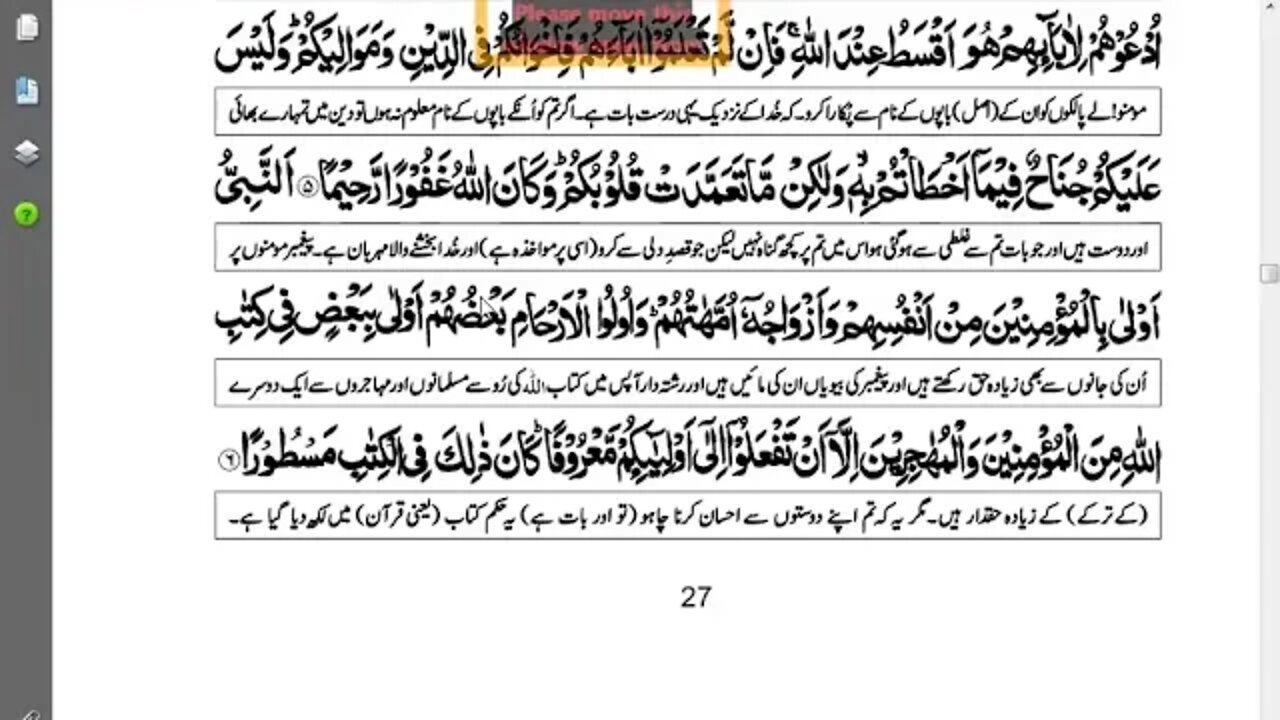 Please move this
اُدْعُوْهُمْ لِاٰبَآىِٕهِمْ هُوَ اَقْسَطُ عِنْدَ اللّٰهِۚ فَاِنْ لَّمْ تَعْلَمُوْۤا اٰبَآءَهُمْ فَاِخْوَانُكُمْ فِی الدِّیْنِ وَ مَوَالِیْكُمْؕ وَ لَیْسَ
مومنو! لے پالکوں کو ان کے (اصل) باپوں کے نام سے پُکارا کرو۔ کہ خُدا کے نزدیک یہی درست بات ہے۔ اگر تم کو اُنکے باپوں کے نام معلوم نہ ہوں تو دین میں تمہارے بھائی
عَلَیْكُمْ جُنَاحٌ فِیْمَاۤ اَخْطَاْتُمْ بِهٖۙ وَ لٰكِنْ مَّا تَعَمَّدَتْ قُلُوْبُكُمْؕ وَ كَانَ اللّٰهُ غَفُوْرًا رَّحِیْمًا ۵ اَلنَّبِیُّ
اور دوست ہیں اور جو بات تم سے غلطی سے ہو گئی ہو اس میں تم پر کچھ گناہ نہیں لیکن جو قصدِ دلی سے کرو (اسی پر مواخذہ ہے) اور خُدا بخشنے والا مہربان ہے۔ پیغمبر مومنوں پر
اَوْلٰى بِالْمُؤْمِنِیْنَ مِنْ اَنْفُسِهِمْ وَ اَزْوَاجُهٗۤ اُمَّهٰتُهُمْؕ وَ اُولُوا الْاَرْحَامِ بَعْضُهُمْ اَوْلٰى بِبَعْضٍ فِیْ كِتٰبِ
اُن کی جانوں سے بھی زیادہ حق رکھتے ہیں اور پیغمبر کی بیویاں ان کی مائیں ہیں اور رشتہ دار آپس میں کتاب اللہ کی رُو سے مسلمانوں اور مہاجروں سے ایک دوسرے
اللّٰهِ مِنَ الْمُؤْمِنِیْنَ وَ الْمُهٰجِرِیْنَ اِلَّاۤ اَنْ تَفْعَلُوْۤا اِلٰۤى اَوْلِیٰٓىِٕكُمْ مَّعْرُوْفًاؕ كَانَ ذٰلِكَ فِی الْكِتٰبِ مَسْطُوْرًا ۶
(کے ترکے) کے زیادہ حقدار ہیں۔ مگر یہ کہ تم اپنے دوستوں سے احسان کرنا چاہو (تو اور بات ہے) یہ حکم کتاب (یعنی قرآن) میں لکھ دیا گیا ہے۔
27